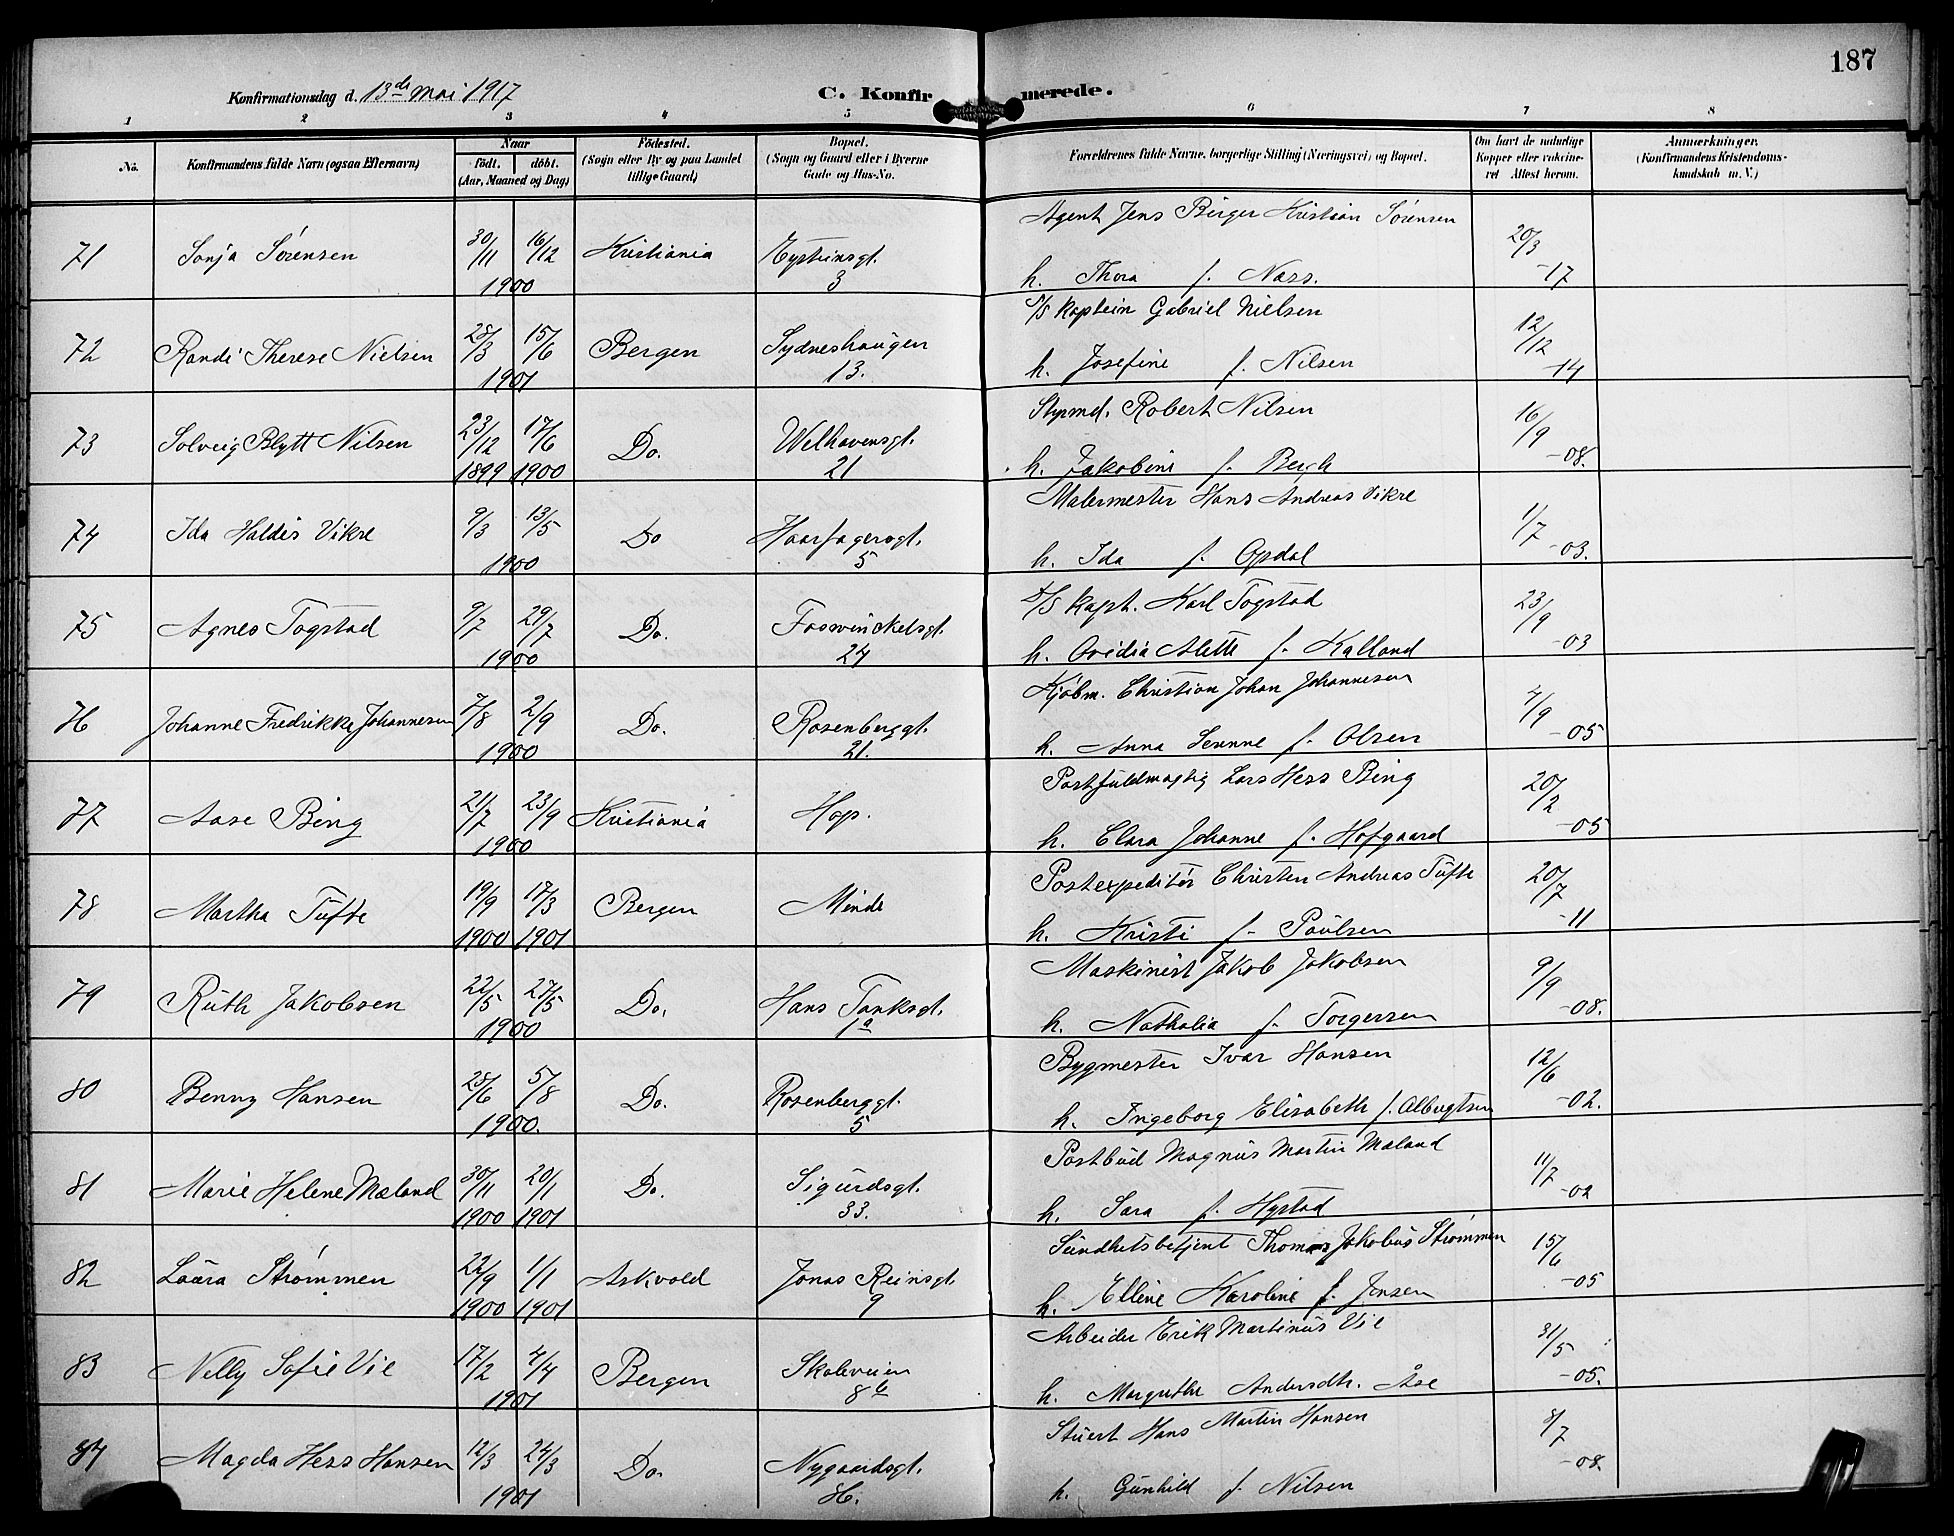 187
Konfirmationsdag d. 13de Mai 1917 C. Konfirmerede.
1 2 3 4 5 6 7 8
No. Konfirmandens fulde Navn (ogsaa Efternavn) Naar født. døbt. (Aar, Maaned og Dag) Fødested. (Sogn eller By og paa Landet tillige Gaard) Bopæl. (Sogn og Gaard eller i Byerne Gade og Hus-No. Forældrenes fulde Navne, borgerlige Stilling (Næringsvei) og Bopæl. Om havt de naturlige Kopper eller vaccineret Attest herom. Anmærkninger. (Konfirmandens Kristendomskundskab m. V.)
71 Sonja Sørensen 30/11 16/12 1900 Kristiania Eysteinsgt. 3 Agent Jens Birger Kristian Sørensen 20/3 -17
h. Thora f. Næss.
72 Randi Therese Nielsen 28/3 15/6 1901 Bergen Sydneshaugen 13. S/S Kaptein Gabriel Nielsen 12/12 -14
h. Josefine f. Nilsen
73 Solveig Blytt Nilsen 23/12 1899 17/6 1900 Do. Welhavensgt. 21 Styrmd. Robert Nilsen 16/9 -08.
h. Jakobine f. Bergh
74 Ida Haldis Vikre 9/3 13/5 1900 Do Haarfagersgt. 5 Malermester Hans Andreas Vikre 1/7 -03.
h. Ida f. Opdal
75 Agnes Togstad 9/7 29/7 1900 Do. Foswinckelsgt. 24 S/S Kapt. Karl Togstad 23/9 -03
h. Ovidia Alette f. Kalland
76 Johanne Fredrikke Johannesen 7/8 2/9 1900 Do. Rosenberggt. 21. Kjøbm. Christian Johan Johannesen 4/9 -05
h. Anna f. Olsen
77 Aase Bing 21/7 23/9 1900 Kristiania Hop. Postfuldmægtig Lars Hess Bing 20/2 -05
h. Clara Johanne f. Hofgaard
78 Martha Tufte 19/9 1900 17/3 1901 Bergen Minde Postexpeditør Christen Andreas Tufte 20/7 -11
h. Kristi f. Paulsen
79 Ruth Jakobsen 22/5 27/5 1900 Do. Hans Tanksgt. 1a Maskinist Jakob Jakobsen 9/9 -08.
h. Nathalia f. Torgersen
80 Benny Hansen 28/6 5/8 1900. Do. Rosenberggt. 5 Bygmester Ivar Hansen 12/6 -02.
h. Ingeborg Elisabeth f. Albugtsen
81 Marie Helene Mæland 30/11 1900 20/1 1901 Do. Sigurdsgt. 33. Postbud Magnus Martin Mæland 11/7 -02
h. Sara f. Hystad
82 Laura Strømmen 22/9 1900 1/1 1901 Askvold Jonas Reinsgt. 9 Sundhetsbetjent Thomas Jakobus Strømmen 15/6 -05
h. Elline Karoline f. Jensen
83 Nelly Sofie Vie 17/2 4/4 1901 Bergen Skoleveien 8b Arbeider Erik Martinus Vie 31/5 -05.
h. Margrethe Andersdtr. Åse
84 Magda Hess Hansen 12/3 24/3 1901 Do. Nygaardsgt. Stuert Hans Martin Hansen 8/7 -08.
h. Gunhild f. Nilsen